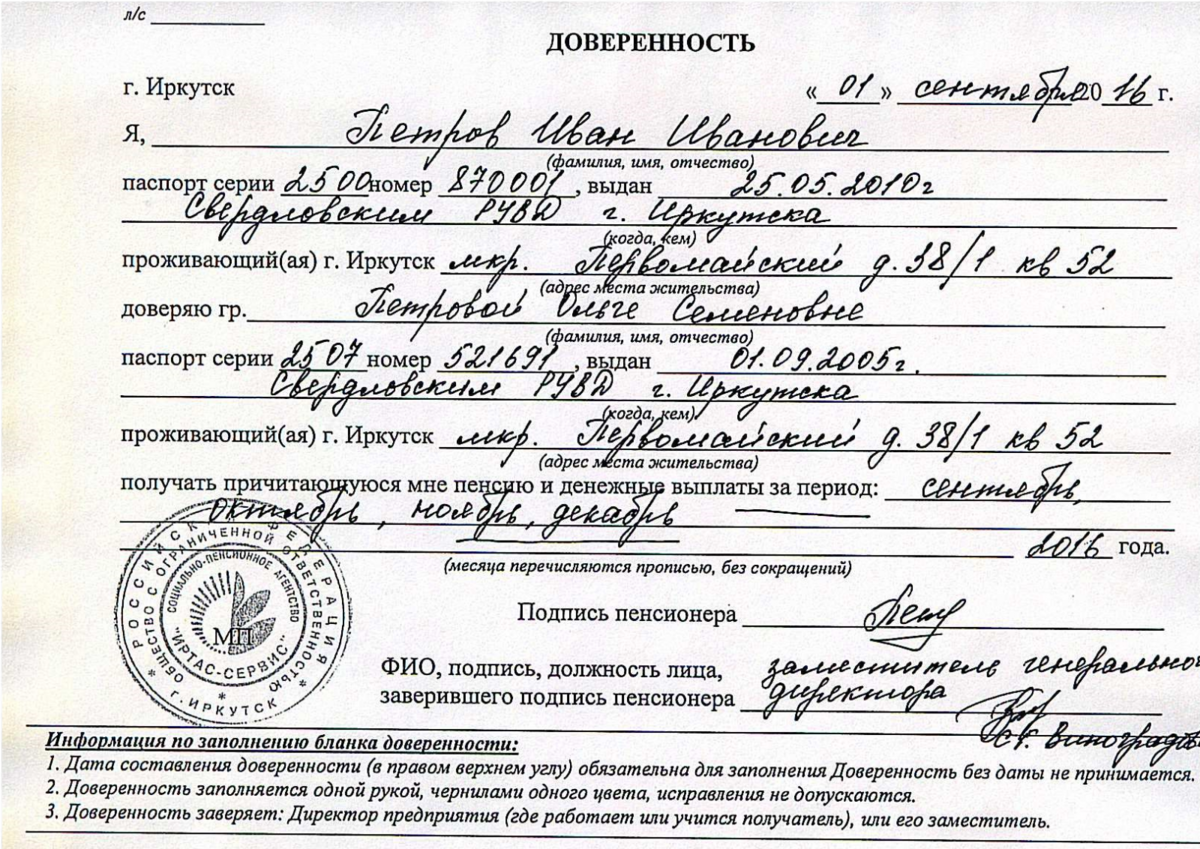 л/с
ДОВЕРЕННОСТЬ
г. Иркутск «01» сентября 2016 г.
Я, Петров Иван Иванович
(фамилия, имя, отчество)
паспорт серии 2500 номер 870001, выдан 25.05.2010г
Свердловским РУВД г. Иркутска
(когда, кем)
проживающий(ая) г. Иркутск мкр. Первомайский д. 38/1 кв 52
(адрес места жительства)
доверяю гр. Петровой Ольге Семеновне
(фамилия, имя, отчество)
паспорт серии 2507 номер 521691, выдан 01.09.2005г.
Свердловским РУВД г. Иркутска
(когда, кем)
проживающий(ая) г. Иркутск мкр. Первомайский д. 38/1 кв 52
(адрес места жительства)
получать причитающуюся мне пенсию и денежные выплаты за период: сентябрь,
октябрь, ноябрь, декабрь
2016 года.
(месяца перечисляются прописью, без сокращений)
РОССИЙСКАЯ ФЕДЕРАЦИЯ
ОБЩЕСТВО С ОГРАНИЧЕННОЙ ОТВЕТСТВЕННОСТЬЮ
СОЦИАЛЬНО-ПЕНСИОННОЕ АГЕНТСТВО
"ИРТАС-СЕРВИС"
* г. ИРКУТСК *
МП
Подпись пенсионера
ФИО, подпись, должность лица, заместитель генерально
заверившего подпись пенсионера директора
Информация по заполнению бланка доверенности:
1. Дата составления доверенности (в правом верхнем углу) обязательна для заполнения Доверенность без даты не принимается.
2. Доверенность заполняется одной рукой, чернилами одного цвета, исправления не допускаются.
3. Доверенность заверяет: Директор предприятия (где работает или учится получатель), или его заместитель.